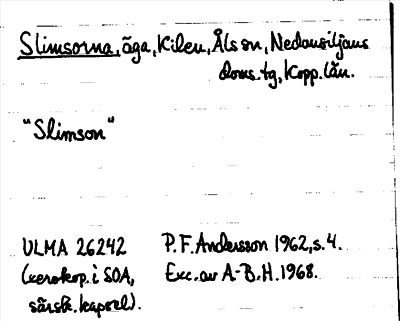 Slimsorna, äga, Kilen, Åls sn, Nedansiljans
doms.tg, Kopp.län.
"Slimson"
ULMA 26242 P.F. Andersson 1962, s. 4.
(xerokop. i SOA, Exc. av A-B.H. 1968.
särsk. kapsel).